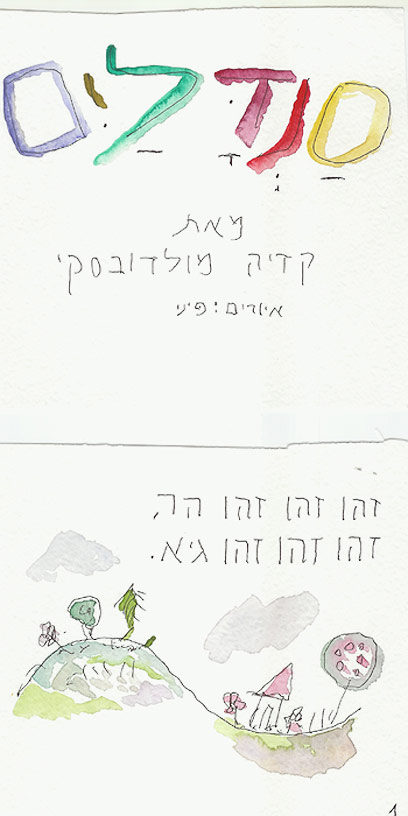 סַנְדָּלַיִם
מאת
קדיה מולדובסקי
איורים: פיני
זהו זהו זהו הר,
זהו זהו זהו גיא.
1